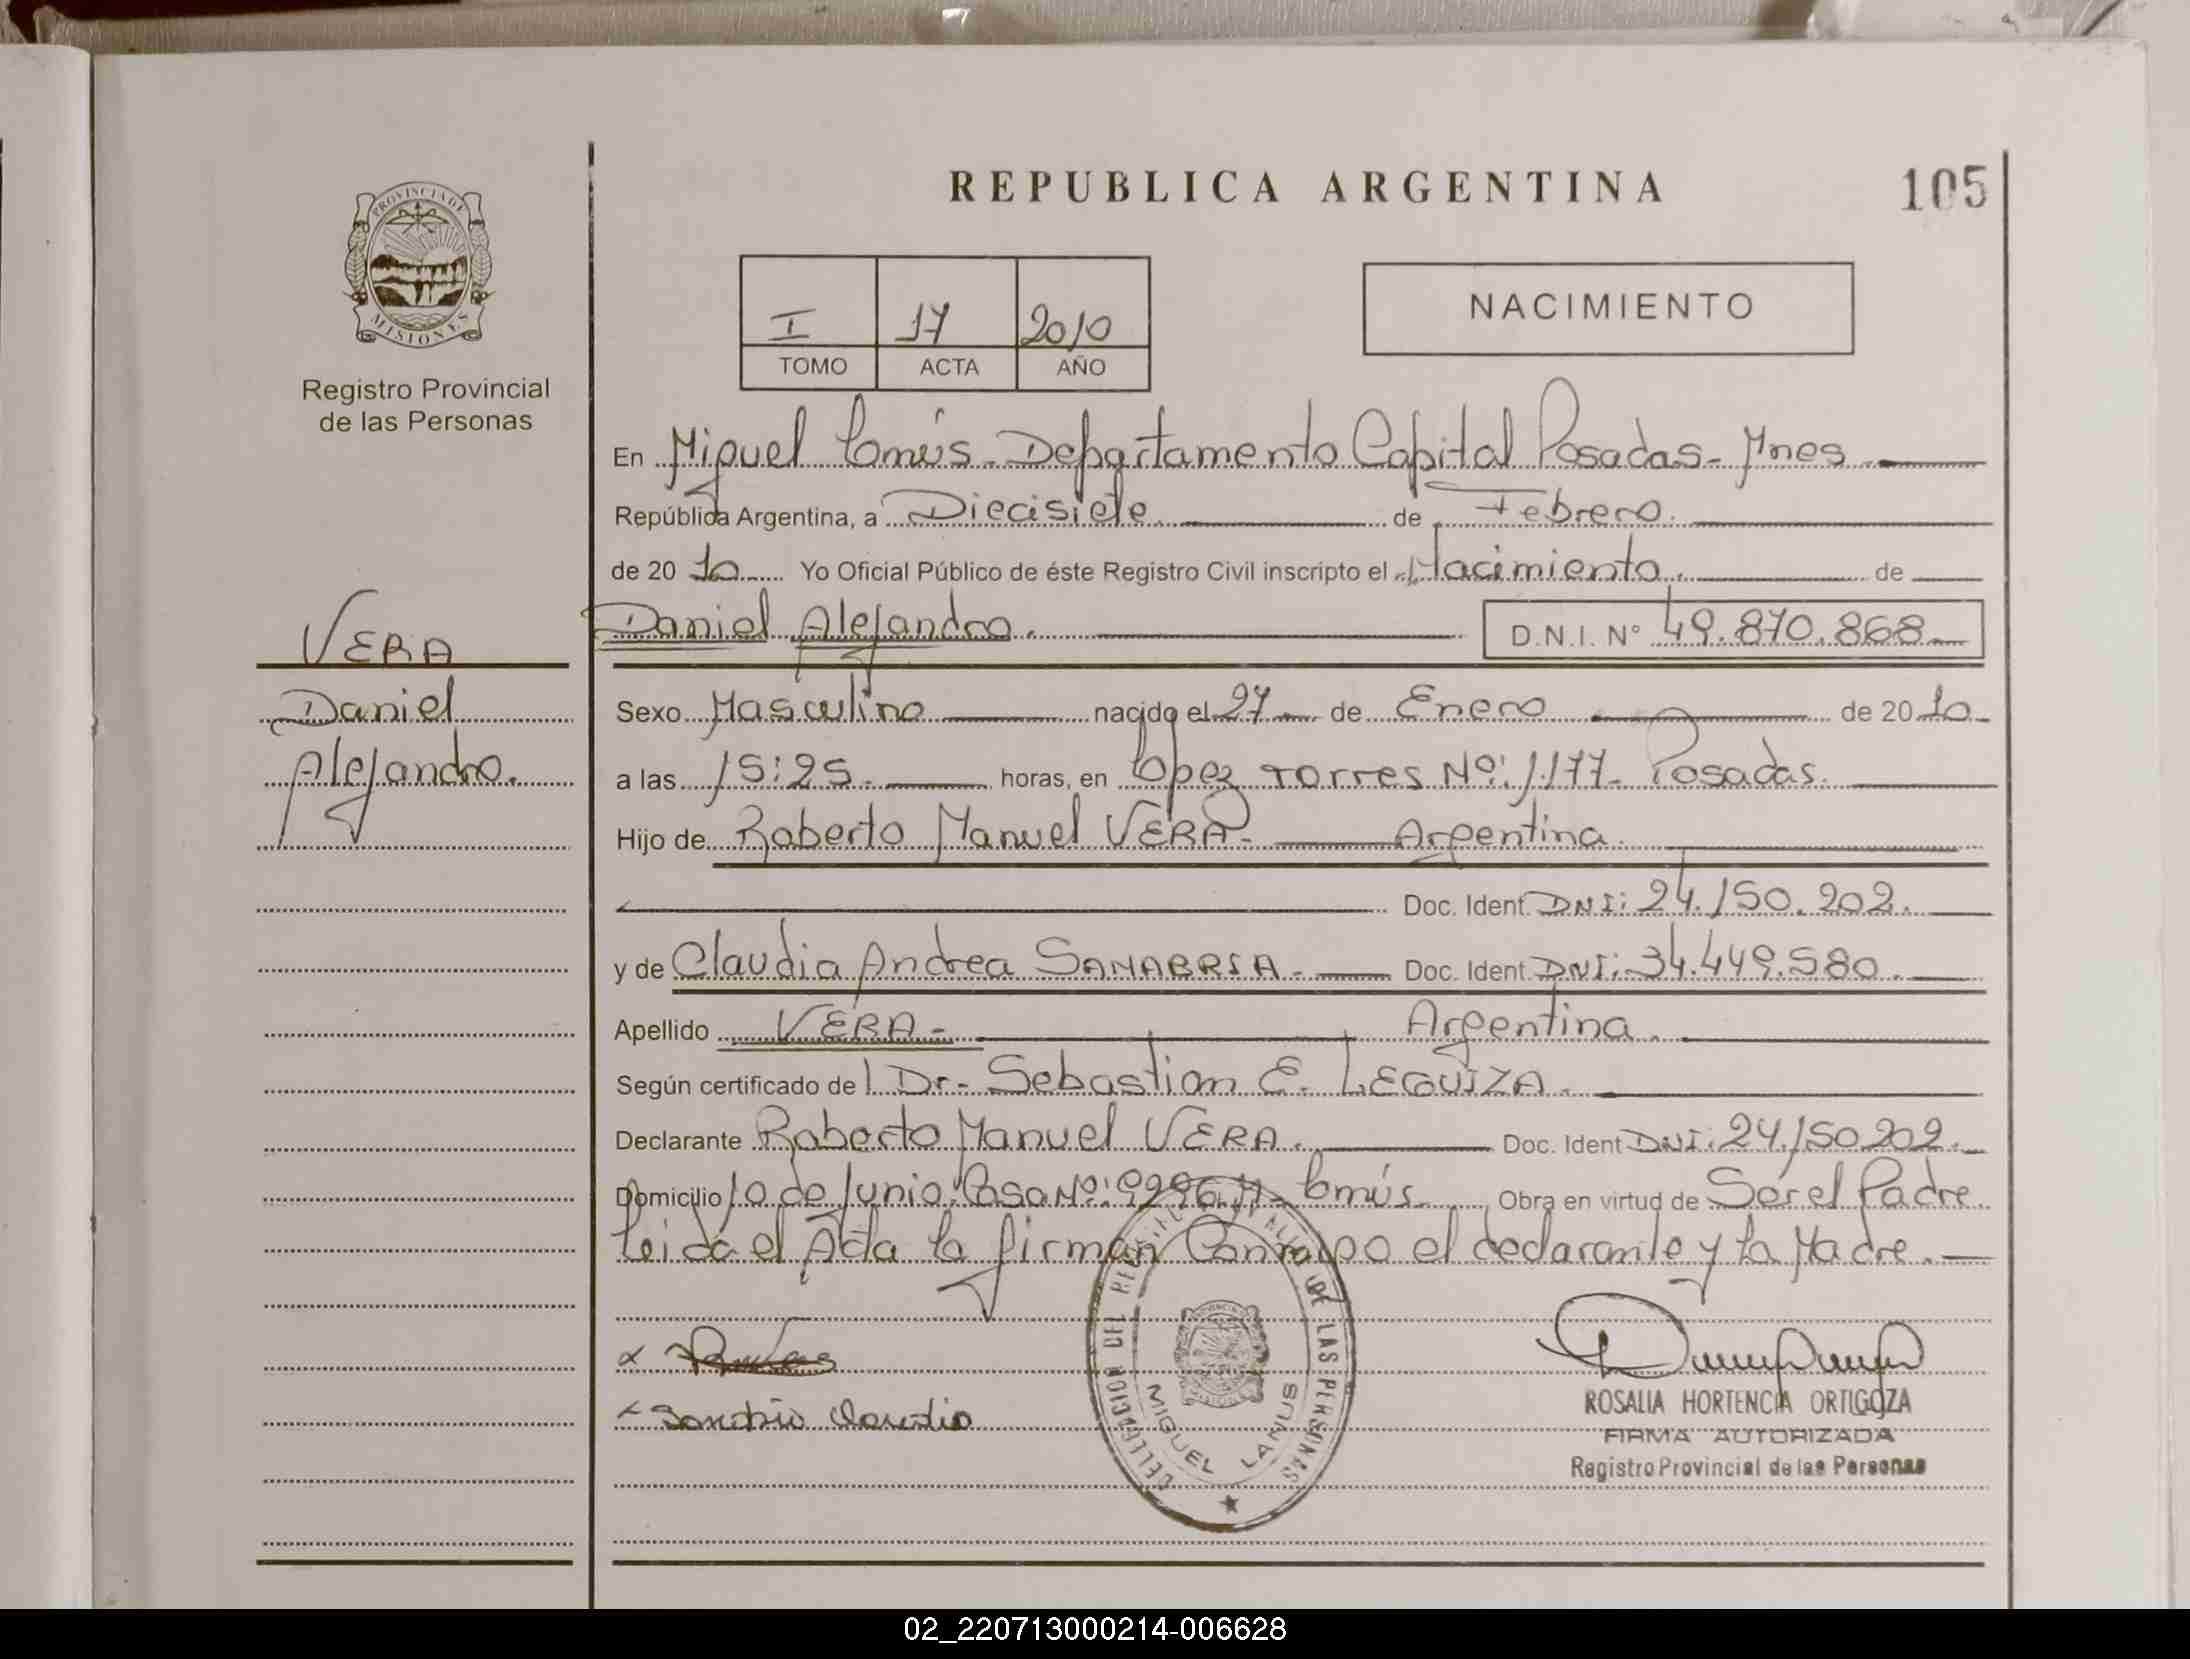 REPUBLICA ARGENTINA
105
PROVINCIA DE
MISIONES
Registro Provincial
de las Personas
I 17 2010
TOMO ACTA AÑO
NACIMIENTO
En Miguel Lanús - Departamento Capital Posadas - Mnes
República Argentina, a Diecisiete de Febrero.
de 20 10 Yo Oficial Público de éste Registro Civil inscripto el Nacimiento. de
Daniel Alejandro. D.N.I. N° 49.870.868
VERA
Daniel
Alejandro.
Sexo Masculino nacido el 27 de Enero de 20 10
a las 15:25. horas, en Lopez Torres Nº: 1.177- Posadas.
Hijo de Roberto Manuel VERA- Argentina.
Doc. Ident. DNI: 24.150.202.
y de Claudia Andrea SANABRIA. Doc. Ident. DNI: 34.449.580.
Apellido VERA- Argentina.
Según certificado de l Dr.- Sebastian E. LEGUIZA.
Declarante Roberto Manuel VERA. Doc. Ident DNI: 24.150.202.
Domicilio 10 de Junio. Casa Nº: M- Lanús. Obra en virtud de Ser el Padre
Leida el Acta la firman Conmigo el declarante y la Madre.
x
x Sanabria Claudia
DELEGACION DEL REGISTRO DE LAS PERSONAS
MIGUEL LANUS
ROSALIA HORTENCIA ORTIGOZA
FIRMA AUTORIZADA
Registro Provincial de las Personas
02_220713000214-006628